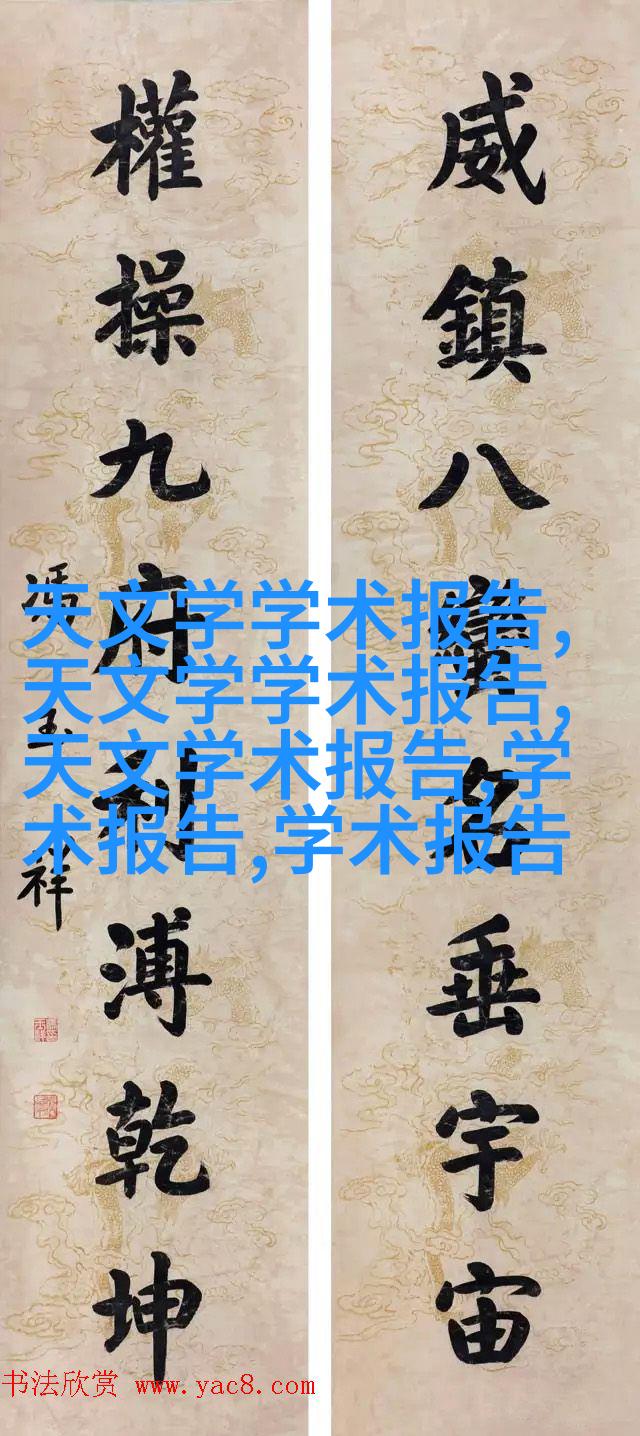 威鎮八蠻名垂宇宙
權操九府利溥乾坤
馮玉祥
天文学学术报告,
天文学学术报告,
天文学术报告,学
术报告,学术报告
书法欣赏 www.yac8.com